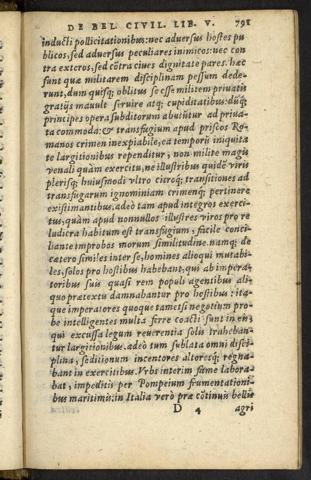 DE BEL. CIVIL. LIB. V. 791
inducti pollicitationibus: nec aduersus hostes pu
blicos, sed aduersus peculiares inimicos: nec con
tra exteros, sed cõtra ciues dignitate pares. hæc
sunt quæ militarem disciplinam pessum dede-
runt, dum quisq; oblitus se esse militem priuatis
gratijs mauult seruire atq; cupiditatibus: dũq;
principes opera subditorum abutũtur ad priua-
ta commoda: & transfugium apud priscos Ro-
manos crimen inexpiabile, ea temporũ iniquita
te largitionibus rependitur, non milite magis
venali quàm exercitu, ne illustribus quidẽ viris
plerisq; huiusmodi vltro citroq; transitiones ad
transfugarum ignominiam crimenq; pertinere
existimantibus. adeò tam apud integros exerci-
tus, quàm apud nonnullos illustres viros pro re
ludicra habitum est transfugium, facile conci-
liante improbos morum similitudine. namq; de
cætero similes inter se, homines alioqui mutabi-
les, solos pro hostibus habebant, qui ab impera-
toribus suis quasi rem populi agentibus ali-
quo prætextu damnabantur pro hostibus: ita-
que imperatores quoque tametsi negotium pro-
be intelligentes multa ferre coacti sunt in eis,
qui excussa legum reuerentia solis traheban-
tur largitionibus. adeò tum sublata omni disci-
plina, seditionum incentores altoresq; regna-
bant in exercitibus. Vrbs interim fame labora-
bat, impeditis per Pompeium frumentationi-
bus maritimis: in Italia verò præ cõtinuis bellis
D 4 agri